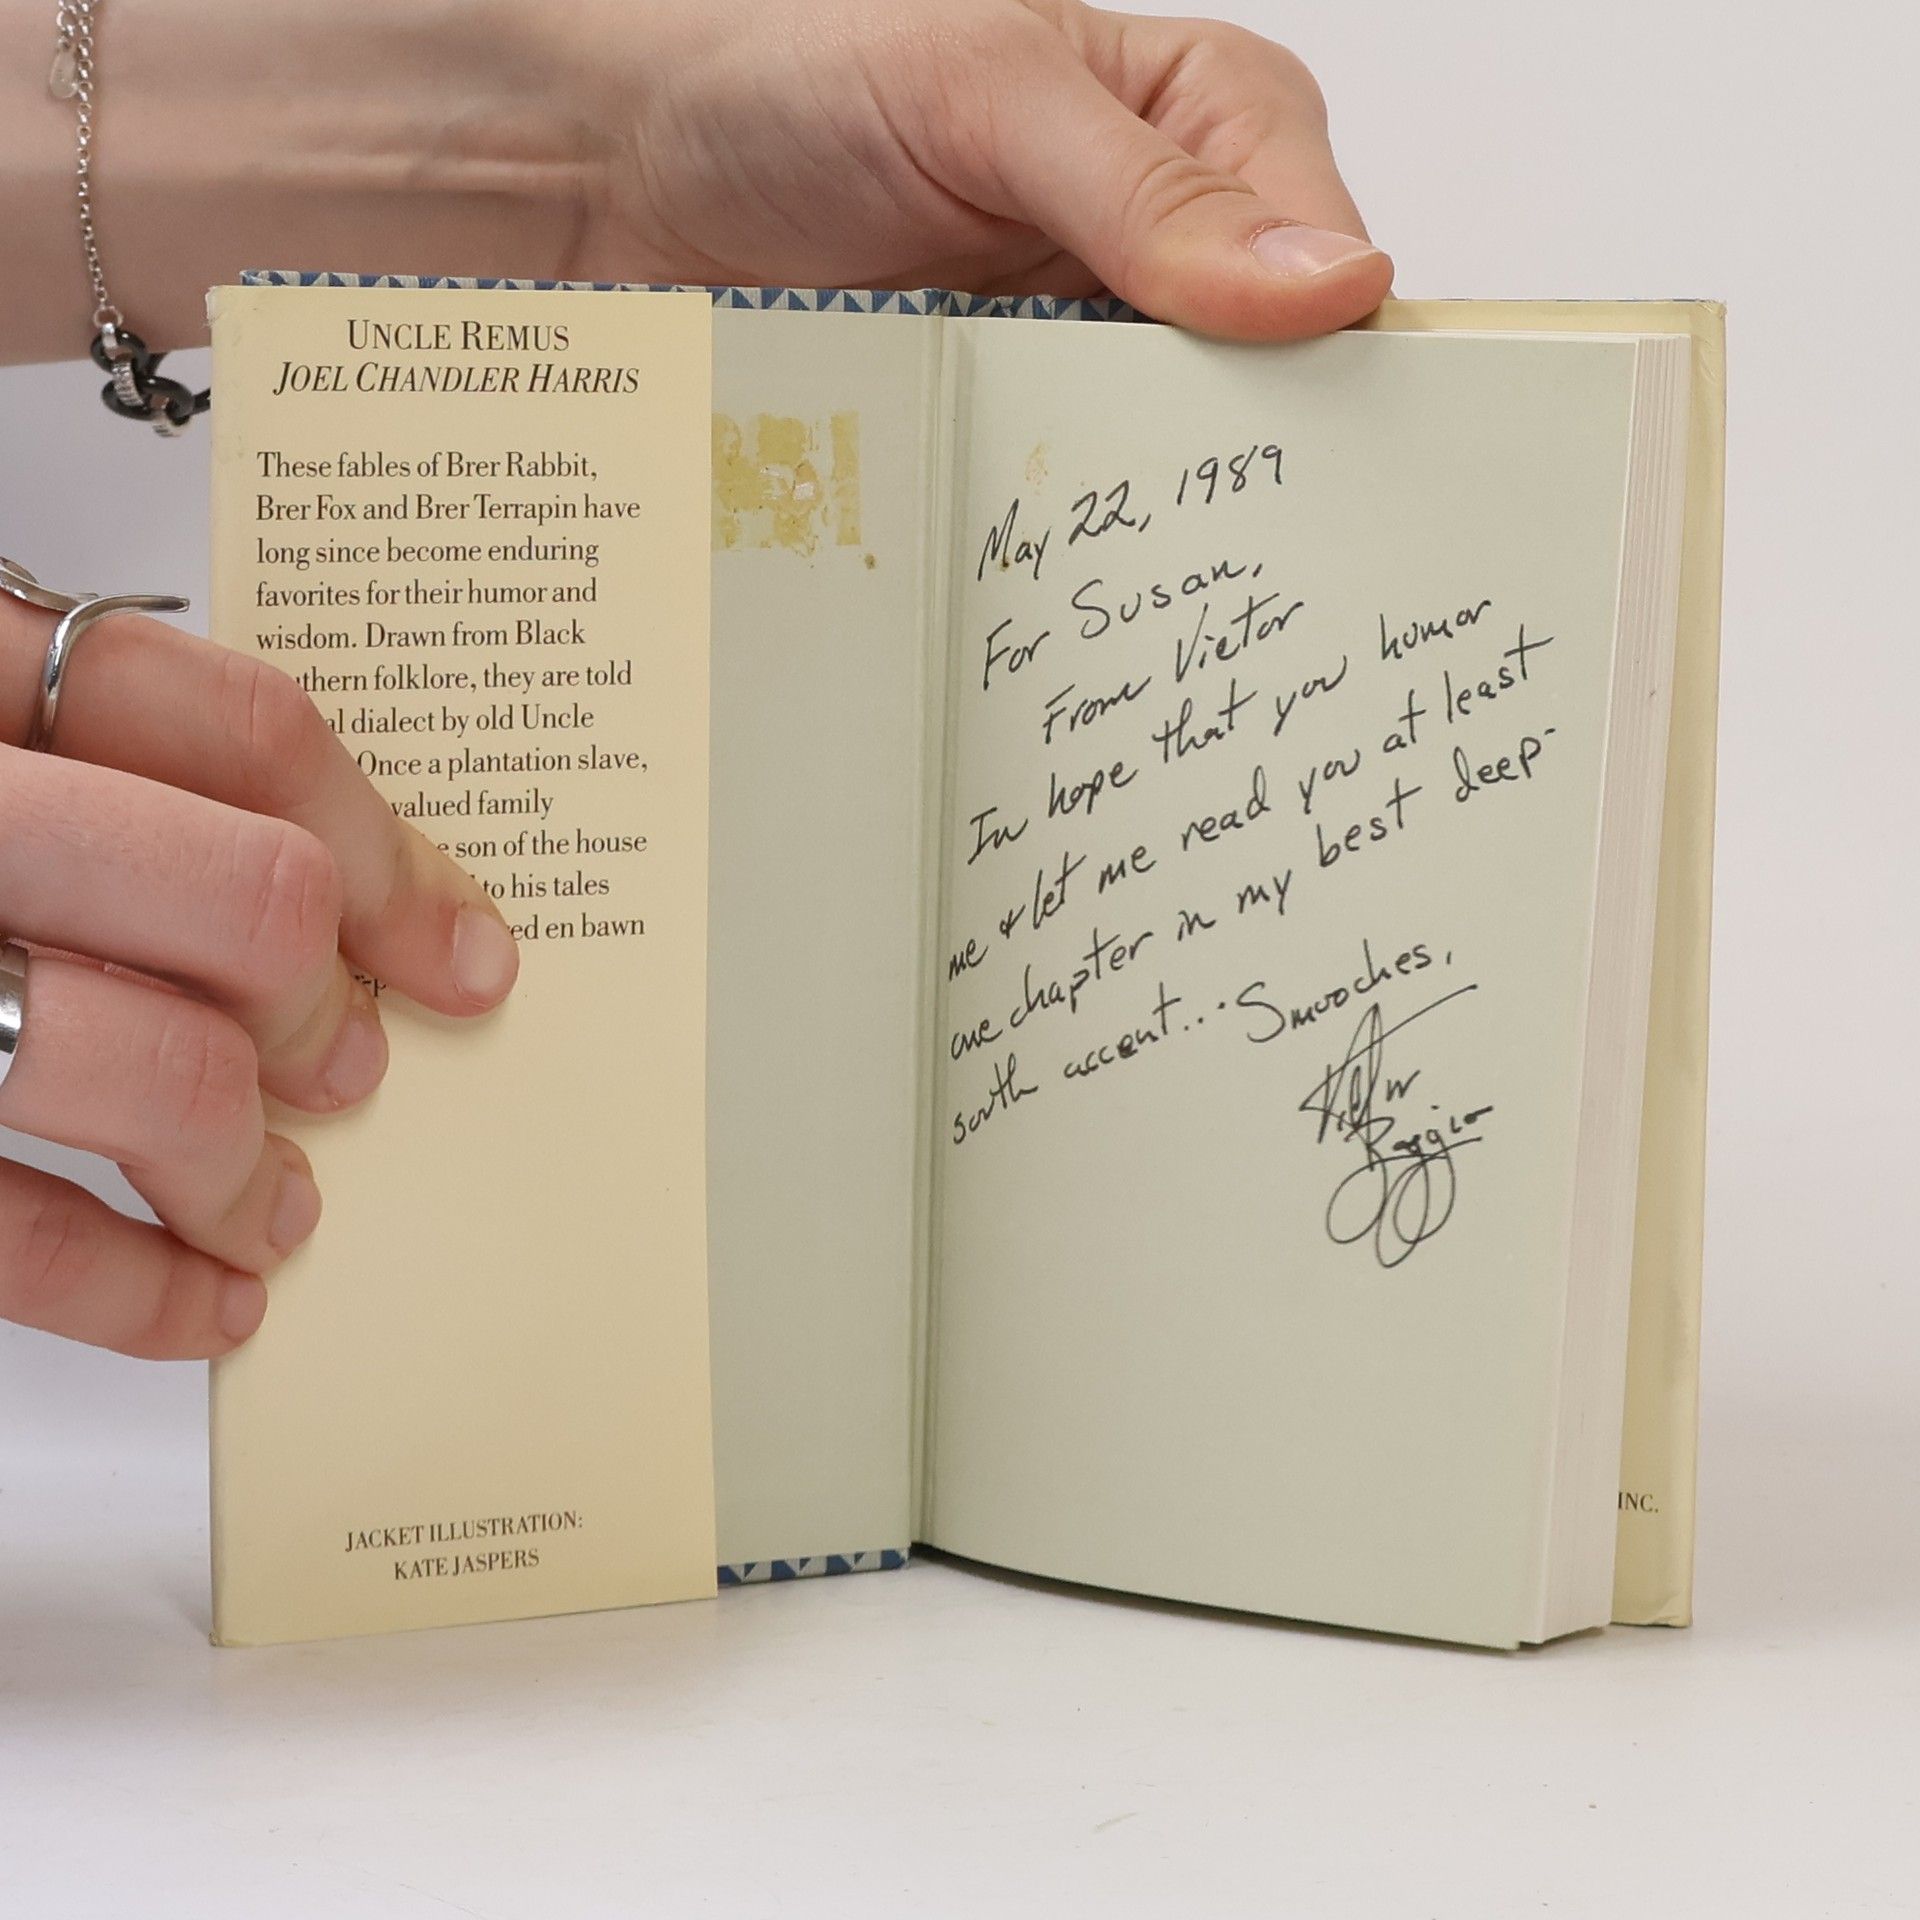 UNCLE REMUS
JOEL CHANDLER HARRIS
These fables of Brer Rabbit,
Brer Fox and Brer Terrapin have
long since become enduring
favorites for their humor and
wisdom. Drawn from Black
folklore, they are told
dialect by old Uncle
Once a plantation slave,
valued family
son of the house
to his tales
en bawn
JACKET ILLUSTRATION:
KATE JASPERS
May 22, 1989
For Susan,
From Victor
In hope that you humor
me & let me read you at least
one chapter in my best deep-
south accent... Smooches,
INC.